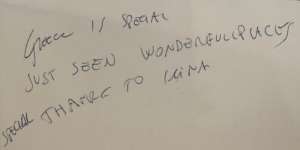 Greece IS SPECIAL
JUST SEEN WONDERFULL PLACES
SPECIAL THANK TO